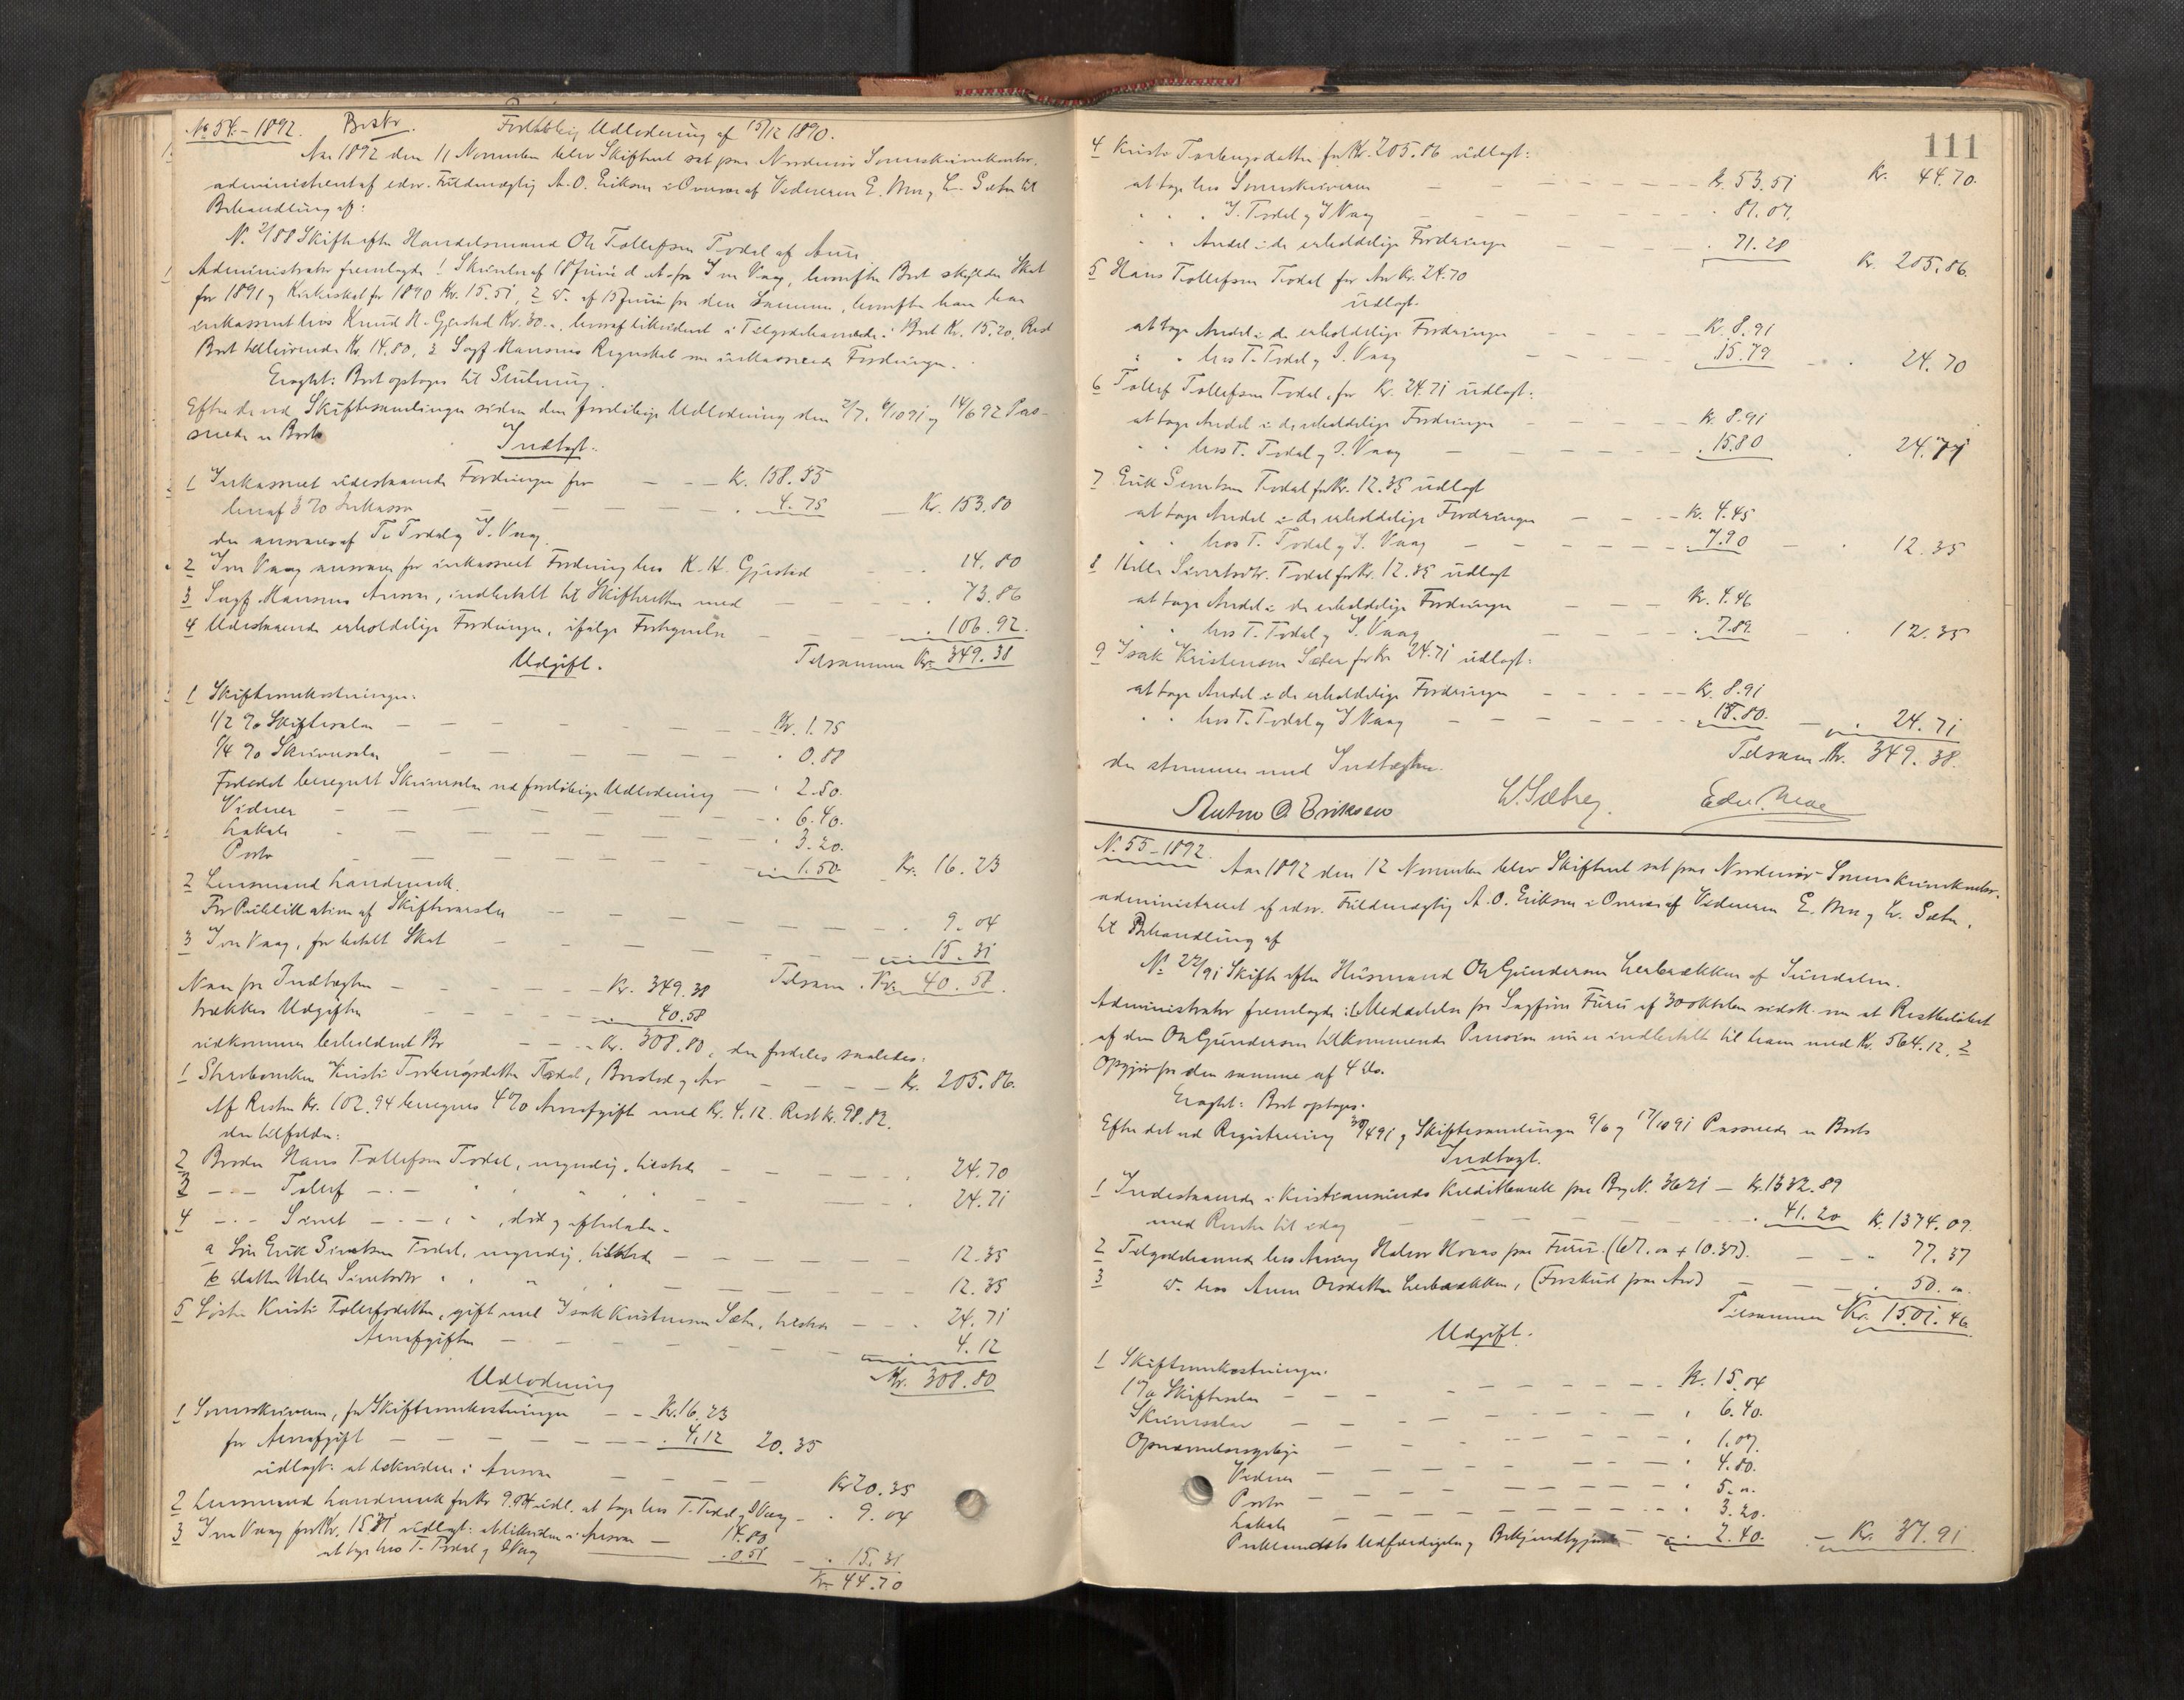 No 54 - 1892. Bestr. Foreløbig Udlodning af 15/12 1890.
Aar 1892 den 11 November blev Skifteret sat paa Nordmør Sorenskriverkontor,
administreret af edsv. Fuldmægtig A. O. Eriksen i Overvær af Vidnerne E. Moe og L. Sæter til
Behandling af:
No 2/88 Skifte efter Handelsmand Ole Tollefsen Todal af Aure
1 Administrator fremlagde 1 Skrivelse af 18 Juni d. A. fra Iver Vaag, hvorefter Boet skylder Skat
for 1891 og Kirkeskat for 1890 Kr. 15.51, 2 do. af 15 Juni fra den samme, hvorefter han har
inkasseret hos Knud H. Gjersted Kr. 30.-, hvoraf likvideret i Tilgodehavende i Boet Kr. 15.20, Rest
Boet tilhørende Kr. 14.80, 3 Sagf Hansens Regnskab over inkasserede Fordringer.
Eragtet: Boet optages til Slutning.
Efter de ved Skiftesamlinger siden den foreløbige Udlodning den 2/7, 6/10 91 og 14/6 92 Pas-
serede er Boets
Indtægt.
1 Inkasseret udestaaende Fordringer for — — Kr. 158.55
heraf 3 % Inkasso — — . 4.75 — Kr. 153.80
der ansvares af T. Todal og I. Vaag.
2 Iver Vaag ansvarer for inkasseret Fordring hos K. H. Gjersted . . 14.80
3 Sagf Hansens Ansvar, indbetalt til Skifteretten med — — . 73.86
4 Udestaaende erholdelige Fordringer, ifølge Fortegnelse — . 106.92.
Tilsammen Kr. 349.38
Udgift.
1 Skifteomkostninger:
1/2 % Skiftesalær — — Kr. 1.75
1/4 % Skriversalær — — . 0.88
Forledet beregnet Skriversalær ved foreløbige Udlodning — . 2.50.
Vidner — — . 6.40.
Lokale — — . 3.20.
Porto — — . 1.50 Kr. 16.23
2 Lensmand Landmark.
For Publikation af Skiftevarsler — — . 9.04
3 Iver Vaag, for betalt Skat — — . 15.31
Tilsam. Kr. 40.58.
Naar fra Indtægten — — Kr. 349.38
trækkes Udgiften — — . 40.58
udkommer beholdent Bo — — Kr. 308.80, der fordeles saaledes:
1 Stervboenken Kristi Torbergsdatter Todal, Boslod og Arv — — Kr. 205.86.
Af Resten Kr. 102.94 beregnes 4 % Arveafgift med Kr. 4.12. Rest Kr. 98.82.
der tilfalder:
2 Broder Hans Tollefsen Todal, myndig, tilstede — — . 24.70
3 — — Tollef — . — " " " — — . 24.71
4 — . — Sivert — . — " " , død og efterladt:
a Søn Erik Sivertsen Todal, myndig, tilstede — — 12.35
b Datter Helle Sivertsdtr " " " — — 12.35
5 Søster Kristi Tollefsdatter, gift med Isak Kristensen Sæter, tilstede — . 24.71
Arveafgiften — — . 4.12
Kr. 308.80
Udlodning
1 Sorenskriveren, for Skifteomkostninger — — Kr. 16.23
for Arveafgift — — . 4.12 20.35
udlagt: at likvidere i Ansvar — — Kr 20.35
2 Lensmand Landmark for Kr 9.04 udl. at tage hos T. Todal og I Vaag — . 9.04
3 Iver Vaag for Kr. 15.31 udlagt: at likvidere i Ansvar — 14.80
at tage hos T. Todal og I Vaag — . 0.51 — . 15.31
Kr 44.70
111
Kr. 44.70.
4 Kristi Torbergsdatter for Kr. 205.86 udlagt:
at tage hos Sorenskriveren — — Kr. 53.51
. . . T. Todal og I Vaag — — . 81.07.
. . Andel i de erholdelige Fordringer — — . 71.28 Kr. 205.86.
5 Hans Tollefsen Todal for Arv Kr. 24.70
udlagt.
at tage Andel i de erholdelige Fordringer — — Kr. 8.91
. . hos T. Todal og I. Vaag — — . 15.79 . . 24.70
6 Tollef Tollefsen Todal, for Kr. 24.71 udlagt:
at tage Andel i de erholdelige Fordringer — — Kr. 8.91
. . hos T. Todal og I. Vaag — — . 15.80 . 24.71
7 Erik Sivertsen Todal for Kr. 12.35 udlagt
at tage Andel i de erholdelige Fordringer — — Kr. 4.45
. . hos T. Todal og I. Vaag — — . 7.90 — . 12.35
8 Helle Sivertsdtr. Todal for Kr. 12.35 udlagt
at tage Andel i de erholdelige Fordringer — — Kr. 4.46
. . hos T. Todal og I. Vaag — — . 7.89 — . 12.35
9 Isak Kristensen Sæter for Kr 24.71 udlagt:
at tage Andel i de erholdelige Fordringer — — Kr. 8.91
. . hos T. Todal og I Vaag — — . 15.80. — . 24.71
Tilsam. Kr. 349.38.
der stemmer med Indtægten.
Anton O Eriksen L. Sæter. Edv. Moe
No 55 - 1892. Aar 1892 den 12 November blev Skifteret sat paa Nordmør Sorenskriverkontor,
administreret af edsv. Fuldmægtig A. O. Eriksen i Overvær af Vidnerne E. Moe og L. Sæter,
til Behandling af
No 22/91 Skifte efter Husmand Ole Gundersen Leerbækken af Sundalen.
Administrator fremlagde: 1 Meddelelse fra Sagfører Furu af 30 oktober sidstl. om at Restbeløbet
af den Ole Gundersen tilkommende Pension nu er indbetalt til ham med Kr. 564.12, 2
Opgjør fra den samme af 4 ds.
Eragtet: Boet optages.
Efter det ved Registrering 30/4 91 og Skiftesamlinger 9/6 og 17/10 91 Passerede er Boets
Indtægt.
1 Indestaaende i Kristiansunds Kreditbank paa Bog No. 3621 — Kr. 1332.89
med Renter til idag — — . 41.20 Kr. 1374.09.
2 Tilgodehavende hos Arving Halvor Hovas paa Furu (67.00 + 10.37). — — " 77.37
3 do. hos Anne Olsdatter Leerbækken, (Forskud paa Arv) — — . 50.00
Tilsammen Kr. 1501.46
Udgift.
1 Skifteomkostninger.
1 % Skiftesalær — — Kr. 15.04
Skriversalær — — . 6.40.
Opnævnelsesgebyr — — . 1.07.
Vidner — — . 4.80.
Porto — — . 5.00
Lokale — — . 3.20.
Proklamaets Udfærdigelse og Bekjendtgjørelse — . 2.40. — Kr. 37.91